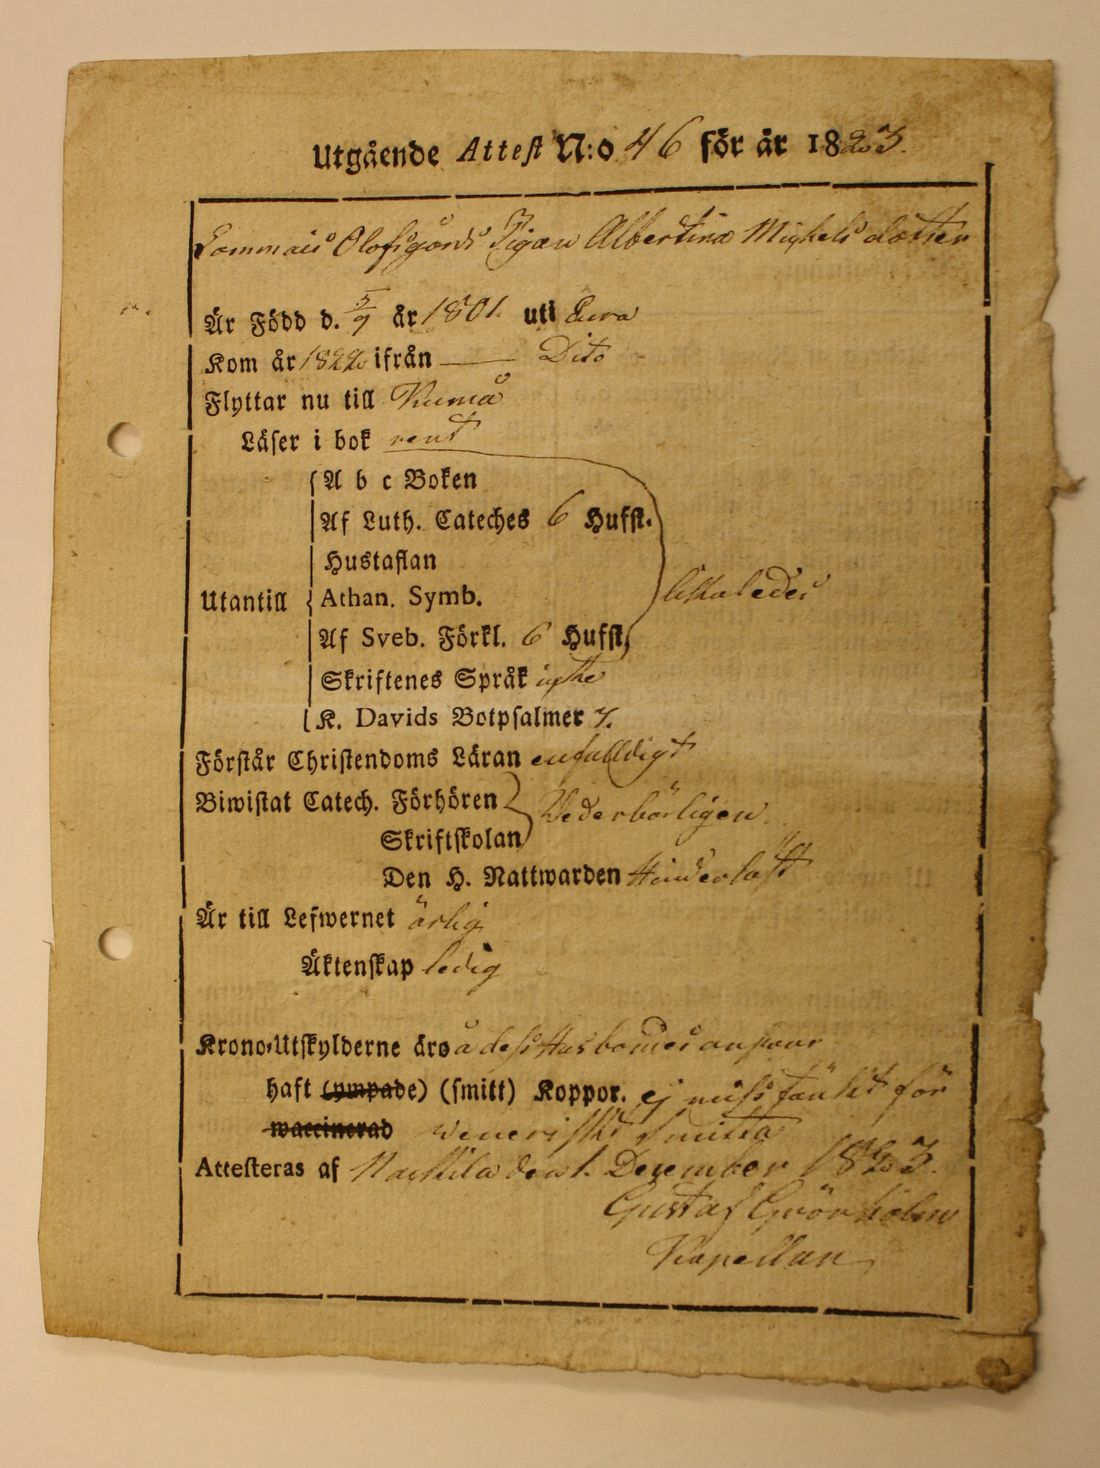 Utgående Attest N:o 46 för år 1823.
Lommais Olofsgårds Pigan Albertina Michels dotter
Är Född d. 5/9 år 1801. uti Eura
Kom år 1822 ifrån — Dito
Flyttar nu till Kumå
Läser i bok rent
A b c Boken
Af Luth. Cateches 6 Hufst.
Hustaflan
Utantill Athan. Symb. likaledes
Af Sveb. Förkl. 6 Hufst,
Skriftenes Språk icke
K. Davids Botpsalmer 7.
Förstår Christendoms Läran enfalldigt
Biwistat Catech. Förhören Vederbörligen.
Skriftskolan
Den H. Nattwarden Hinderlöst
Är till Lefwernet ärlig
Äktenskap ledig
Krono-Utskylderne äro å dess Husbondes answar
haft (ympade) (smitt) Koppor. ej misstänkt för
waccinerad Venerisk Smitta
Attesteras af Nackila den 1. December 1823.
Gustaf Grönholm
Kapellan